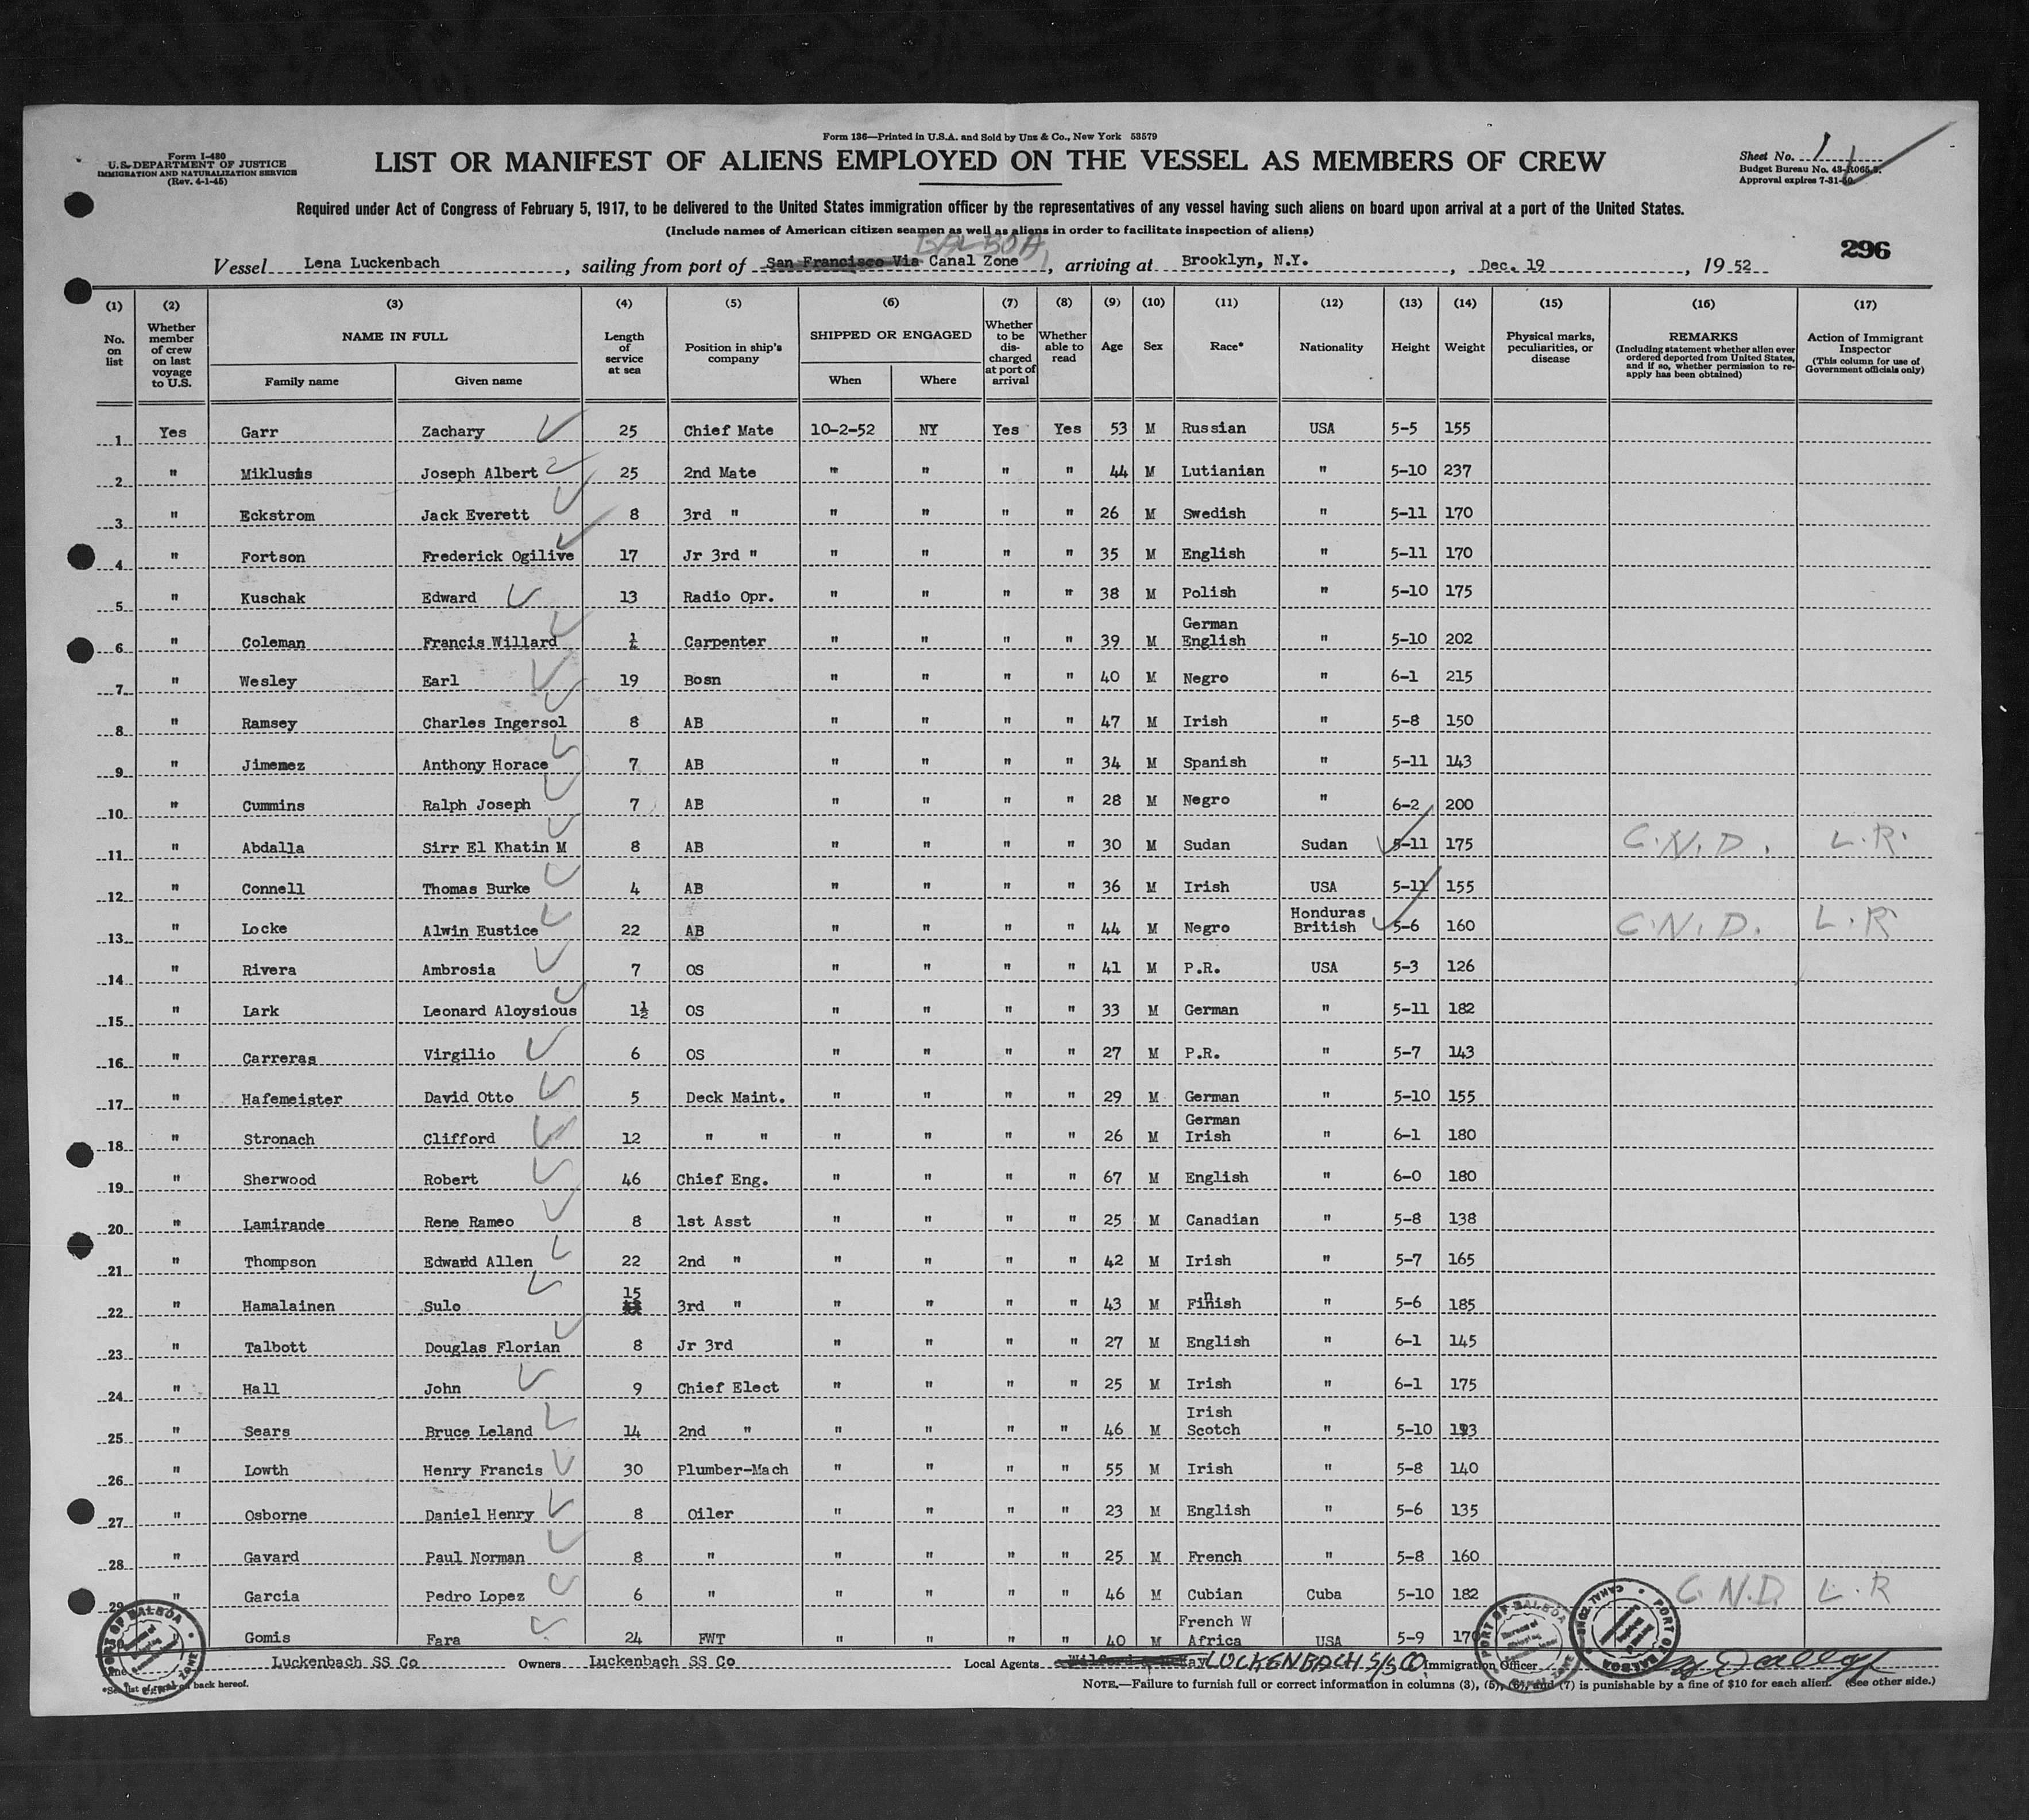 Form 136—Printed in U.S.A. and Sold by Unz & Co., New York 53579
Form I-480
U.S. DEPARTMENT OF JUSTICE
IMMIGRATION AND NATURALIZATION SERVICE
(Rev. 4-1-45)
LIST OR MANIFEST OF ALIENS EMPLOYED ON THE VESSEL AS MEMBERS OF CREW
Sheet No. 1
Budget Bureau No. 43-R065.
Approval expires 7-31-
Required under Act of Congress of February 5, 1917, to be delivered to the United States immigration officer by the representatives of any vessel having such aliens on board upon arrival at a port of the United States.
(Include names of American citizen seamen as well as aliens in order to facilitate inspection of aliens)
296
BALBOA,
Vessel Lena Luckenbach, sailing from port of San Francisco Via Canal Zone, arriving at Brooklyn, N.Y., Dec. 19, 1952
(1) (2) (3) (4) (5) (6) (7) (8) (9) (10) (11) (12) (13) (14) (15) (16) (17)
No. on list
Whether member of crew on last voyage to U.S.
NAME IN FULL
Family name Given name
Length of service at sea
Position in ship's company
SHIPPED OR ENGAGED
When Where
Whether to be discharged at port of arrival
Whether able to read
Age Sex Race* Nationality Height Weight
Physical marks, peculiarities, or disease
REMARKS
(Including statement whether alien ever ordered deported from United States, and if so, whether permission to re-apply has been obtained)
Action of Immigrant Inspector
(This column for use of Government officials only)
1 Yes Garr Zachary 25 Chief Mate 10-2-52 NY Yes Yes 53 M Russian USA 5-5 155
2 " Miklusis Joseph Albert 25 2nd Mate " " " " 44 M Lutianian " 5-10 237
3 " Eckstrom Jack Everett 8 3rd " " " " " 26 M Swedish " 5-11 170
4 " Fortson Frederick Ogilive 17 Jr 3rd " " " " " 35 M English " 5-11 170
5 " Kuschak Edward 13 Radio Opr. " " " " 38 M Polish " 5-10 175
6 " Coleman Francis Willard Carpenter " " " " 39 M German English " 5-10 202
7 " Wesley Earl 19 Bosn " " " " 40 M Negro " 6-1 215
8 " Ramsey Charles Ingersol 8 AB " " " " 47 M Irish " 5-8 150
9 " Jimemez Anthony Horace 7 AB " " " " 34 M Spanish " 5-11 143
10 " Cummins Ralph Joseph 7 AB " " " " 28 M Negro " 6-2 200
11 " Abdalla Sirr El Khatin M 8 AB " " " " 30 M Sudan Sudan 5-11 175 C.N.D. L.R.
12 " Connell Thomas Burke 4 AB " " " " 36 M Irish USA 5-11 155
13 " Locke Alwin Eustice 22 AB " " " " 44 M Negro Honduras British 5-6 160 C.N.D. L.R
14 " Rivera Ambrosia 7 OS " " " " 41 M P.R. USA 5-3 126
15 " Lark Leonard Aloysious 1½ OS " " " " 33 M German " 5-11 182
16 " Carreras Virgilio 6 OS " " " " 27 M P.R. " 5-7 143
17 " Hafemeister David Otto 5 Deck Maint. " " " " 29 M German " 5-10 155
18 " Stronach Clifford 12 " " " " " " 26 M German Irish " 6-1 180
19 " Sherwood Robert 46 Chief Eng. " " " " 67 M English " 6-0 180
20 " Lamirande Rene Rameo 8 1st Asst " " " " 25 M Canadian " 5-8 138
21 " Thompson Edward Allen 22 2nd " " " " " 42 M Irish " 5-7 165
22 " Hamalainen Sulo 15 3rd " " " " " 43 M Finnish " 5-6 185
23 " Talbott Douglas Florian 8 Jr 3rd " " " " 27 M English " 6-1 145
24 " Hall John 9 Chief Elect " " " " 25 M Irish " 6-1 175
25 " Sears Bruce Leland 14 2nd " " " " " 46 M Irish Scotch " 5-10
26 " Lowth Henry Francis 30 Plumber-Mach " " " " 55 M Irish " 5-8 140
27 " Osborne Daniel Henry 8 Oiler " " " " 23 M English " 5-6 135
28 " Gavard Paul Norman 8 " " " " " 25 M French " 5-8 160
29 " Garcia Pedro Lopez 6 " " " " " 46 M Cubian Cuba 5-10 182 C.N.D. L.R
30 " Gomis Fara 24 FWT " " " " 40 M French W Africa USA 5-9 170
Line Luckenbach SS Co Owners Luckenbach SS Co Local Agents LUCKENBACH S/S CO. Immigration Officer
*See list of races on back hereof.
NOTE.—Failure to furnish full or correct information in columns (3), (5), (6), and (7) is punishable by a fine of $10 for each alien. (See other side.)
PORT OF BALBOA
CANAL ZONE
PORT OF BALBOA
CANAL ZONE
PORT OF BALBOA
CANAL ZONE